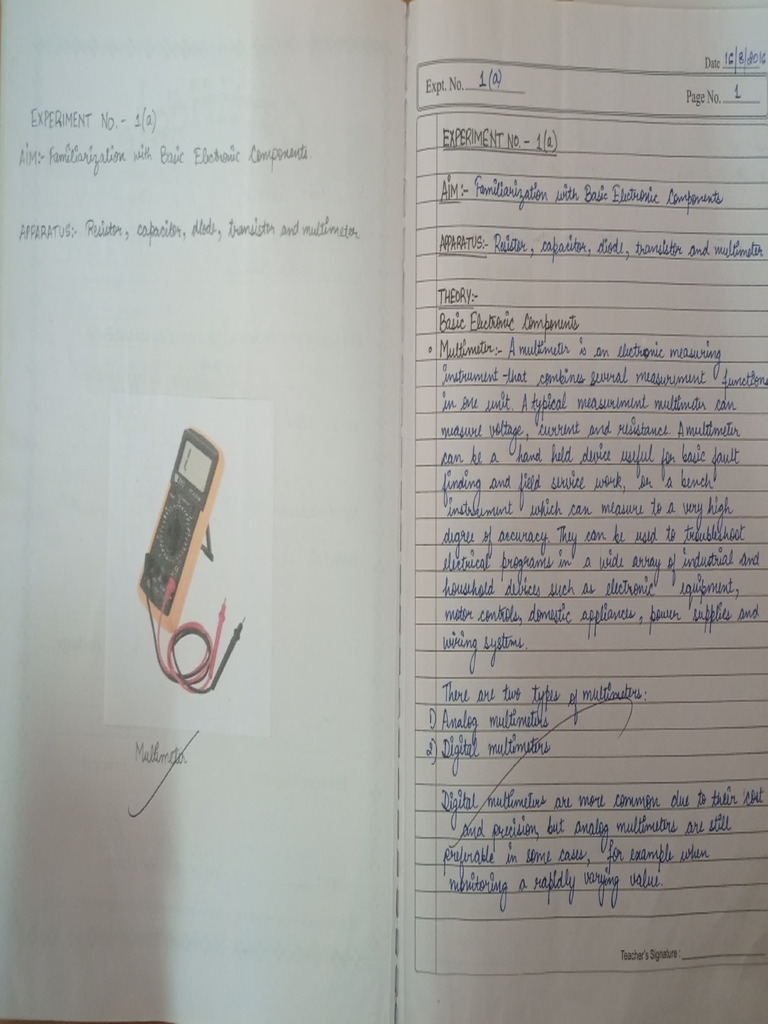 EXPERIMENT NO.- 1(a)
AIM:- Familiarization with Basic Electronic Components.
APPARATUS:- Resistor, capacitor, diode, transistor and multimeter
Multimeter
Date 16/8/2016
Expt. No. 1(a)
Page No. 1
EXPERIMENT NO. - 1(a)
AIM:- Familiarization with Basic Electronic Components
APPARATUS:- Resistor, capacitor, diode, transistor and multimeter
THEORY:-
Basic Electronic Components
• Multimeter:- A multimeter is an electronic measuring
instrument that combines several measurement functions
in one unit. A typical measurement multimeter can
measure voltage, current and resistance. A multimeter
can be a hand held device useful for basic fault
finding and field service work, or a bench
instrument which can measure to a very high
degree of accuracy. They can be used to troubleshoot
electrical programs in a wide array of industrial and
household devices such as electronic equipment,
motor controls, domestic appliances, power supplies and
wiring systems.
There are two types of multimeters:
1) Analog multimeters
2) Digital multimeters
Digital multimeters are more common due to their cost
and precision, but analog multimeters are still
preferable in some cases, for example when
monitoring a rapidly varying value.
Teacher's Signature :